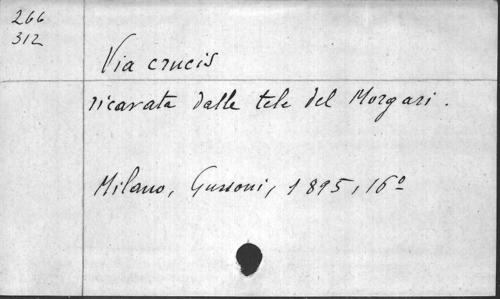 266
312
Via crucis
ricavata dalle tele del Morgari.
Milano, Gussoni, 1895, 16º